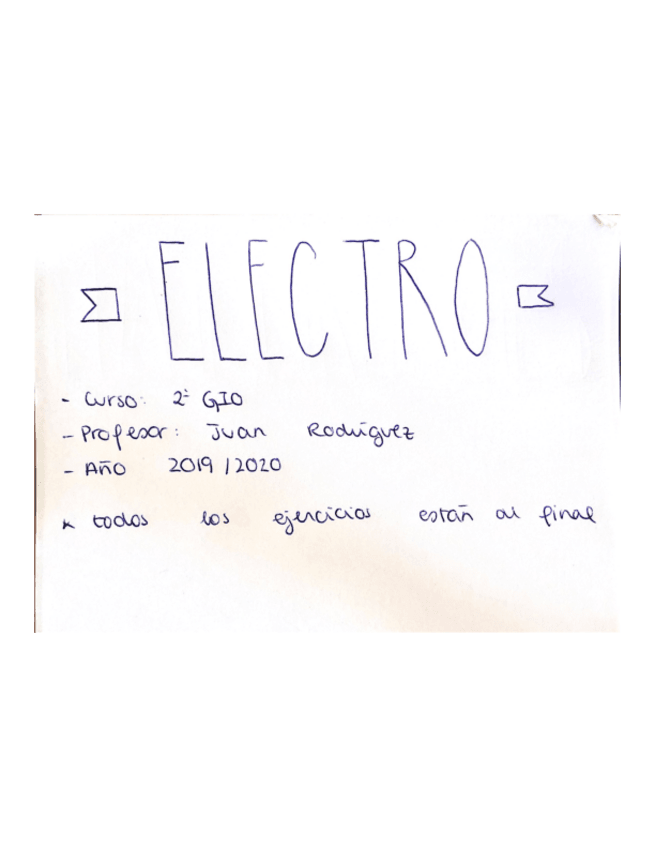 ELECTRO
- Curso: 2º GIO
- Profesor: Juan Rodríguez
- Año 2019/2020
* todos los ejercicios están al final